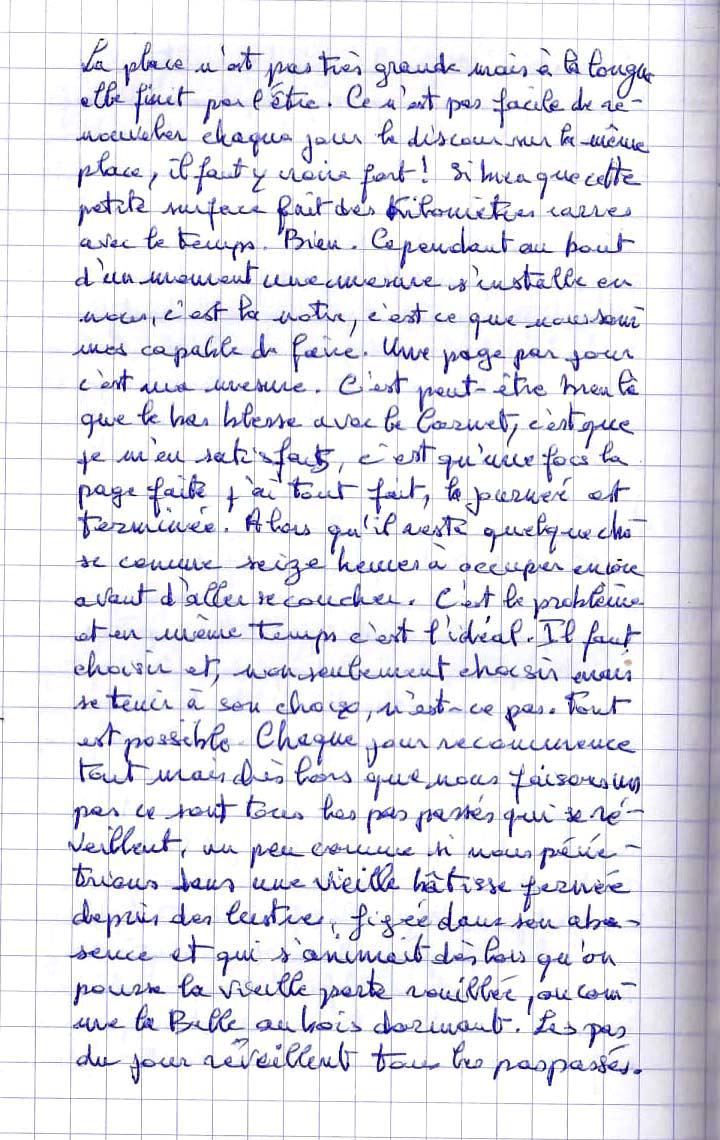 La place n'est pas très grande mais à la longue
elle finit par l'être. Ce n'est pas facile de re-
nouveler chaque jour le discour sur la même
place, il faut y croire fort! Si bien que cette
petite surface fait des Kilomètres carres
avec le temps. Bien. Cependant au bout
d'un moment une mesure s'installe en
nous, c'est la notre, c'est ce que nous som-
mes capable de faire. Une page par jour
c'est ma mesure. C'est peut-être bien là
que le bas blesse avec le Carnet, c'est que
je m'en satisfait, c'est qu'une fois la
page faite j'ai tout fait, la journeé est
terminée. Alors qu'il reste quelque cho-
se comme seize heures à occuper encore
avant d'aller se coucher. C'est le problème
et en même temps c'est l'idéal. Il faut
choisir et, non seulement choisir mais
se tenir à son choix, n'est-ce pas. Tout
est possible. Chaque jour recommence
tout mais dès lors que nous faisons un
pas ce sont tous les pas passés qui se ré-
veillent, un peu comme si nous péné-
trions dans une vieille bâtisse fermée
depuis des lustres, figée dans son ab-
sence et qui s'animait dès lors qu'on
pousse la vieille porte rouillée, ou com-
me la Belle au bois dormant. Les pas
du jour réveillent tous les pas passés.